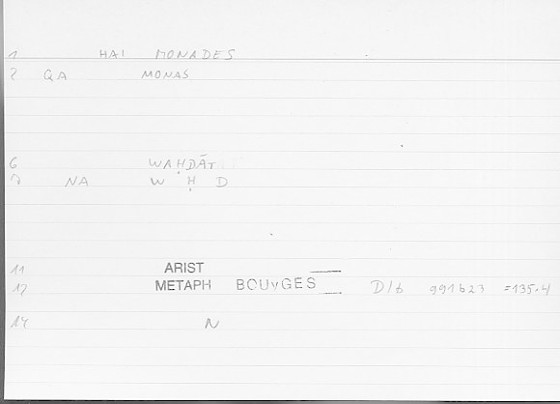 1 HAI MONADES
2 QA MONAS
6 WAḤDĀT
7 NA W Ḥ D
11 ARIST
12 METAPH BOUyGES D/b 991b23 =135.4
14 N